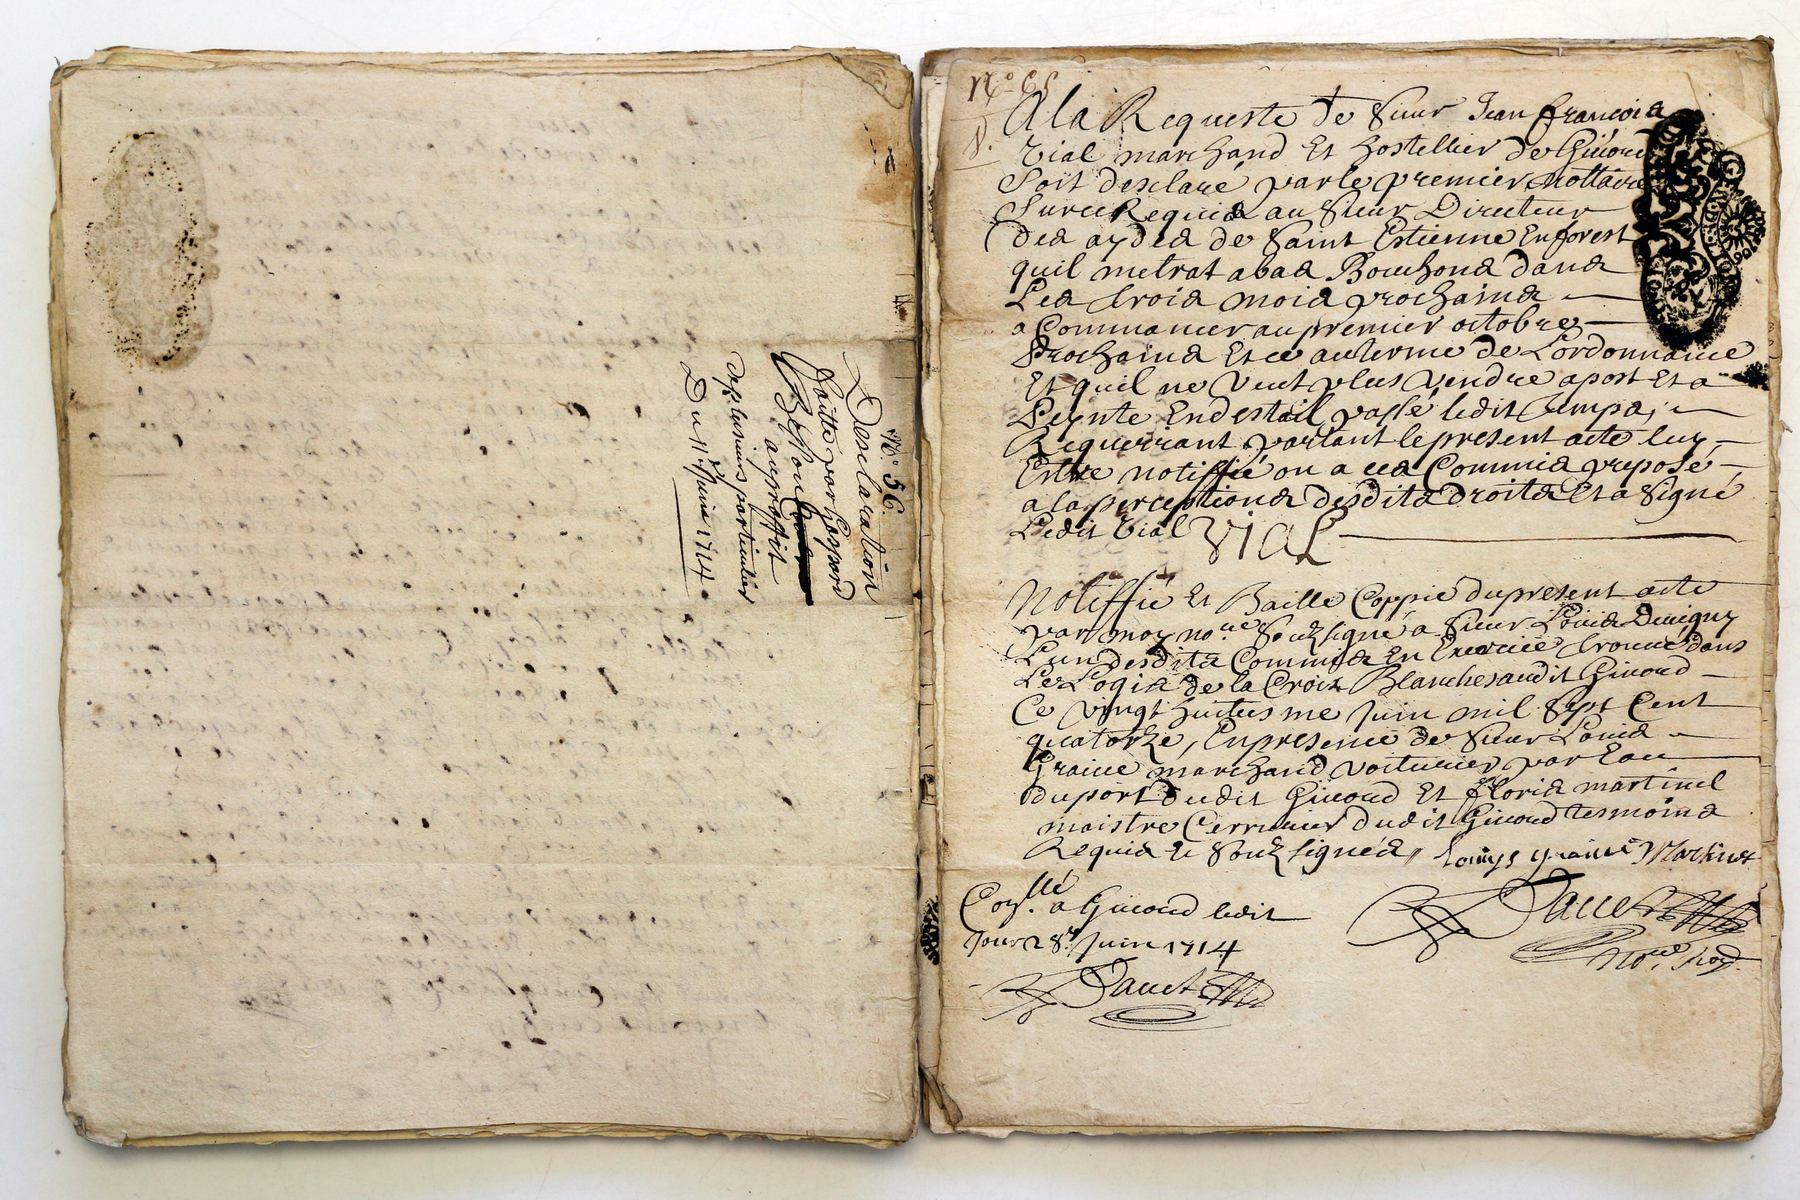 N.° 56.
Desclaration
faitte par Gaspard
Bethon
au proffit
de plusieurs particulier
Du 11.e Juin 1714
A la Requeste de Sieur Jean françois
Vial marchand Et hostellier de Givord
Soit desclaré par le premier Nottaire
Sur ce Requis au Sieur Directeur
des aydes de Saint Estienne En forest
quil metrat a bas Bouchons dans
Les trois mois prochains
a Commancer au premier octobre
Prochains Et ce au terme de Lordonnance
Et quil ne veut plus vendre a post Et a
Peynte En destail passé ledit temps,
Requerrant partant le present acte luy
Estre notiffié ou a ces Commis preposé
a la perceptions desdits droits Et a Signé
Ledit Vial VIAL
Notiffié Et Baillé Coppie du present acte
par moy no.re Soubsigné a Sieur Louis Duvigny
Lun desdits Commis En Exercice trouvé dans
Le Logis de la Croix Blanche audit Givord
Ce vingt huitiesme Juin mil Sept Cent
quatorze, En presence de Sieur Louis
Graive marchand voiturier par Eau
du port dudit Givord Et floris martinel
maistre Cerrurier dudit Givord tesmoins
Requis Et Soubsignés Louys graive Martinel
llé
Con. a Givord ledit
Jour 28.e Juin 1714
no.re Roy.